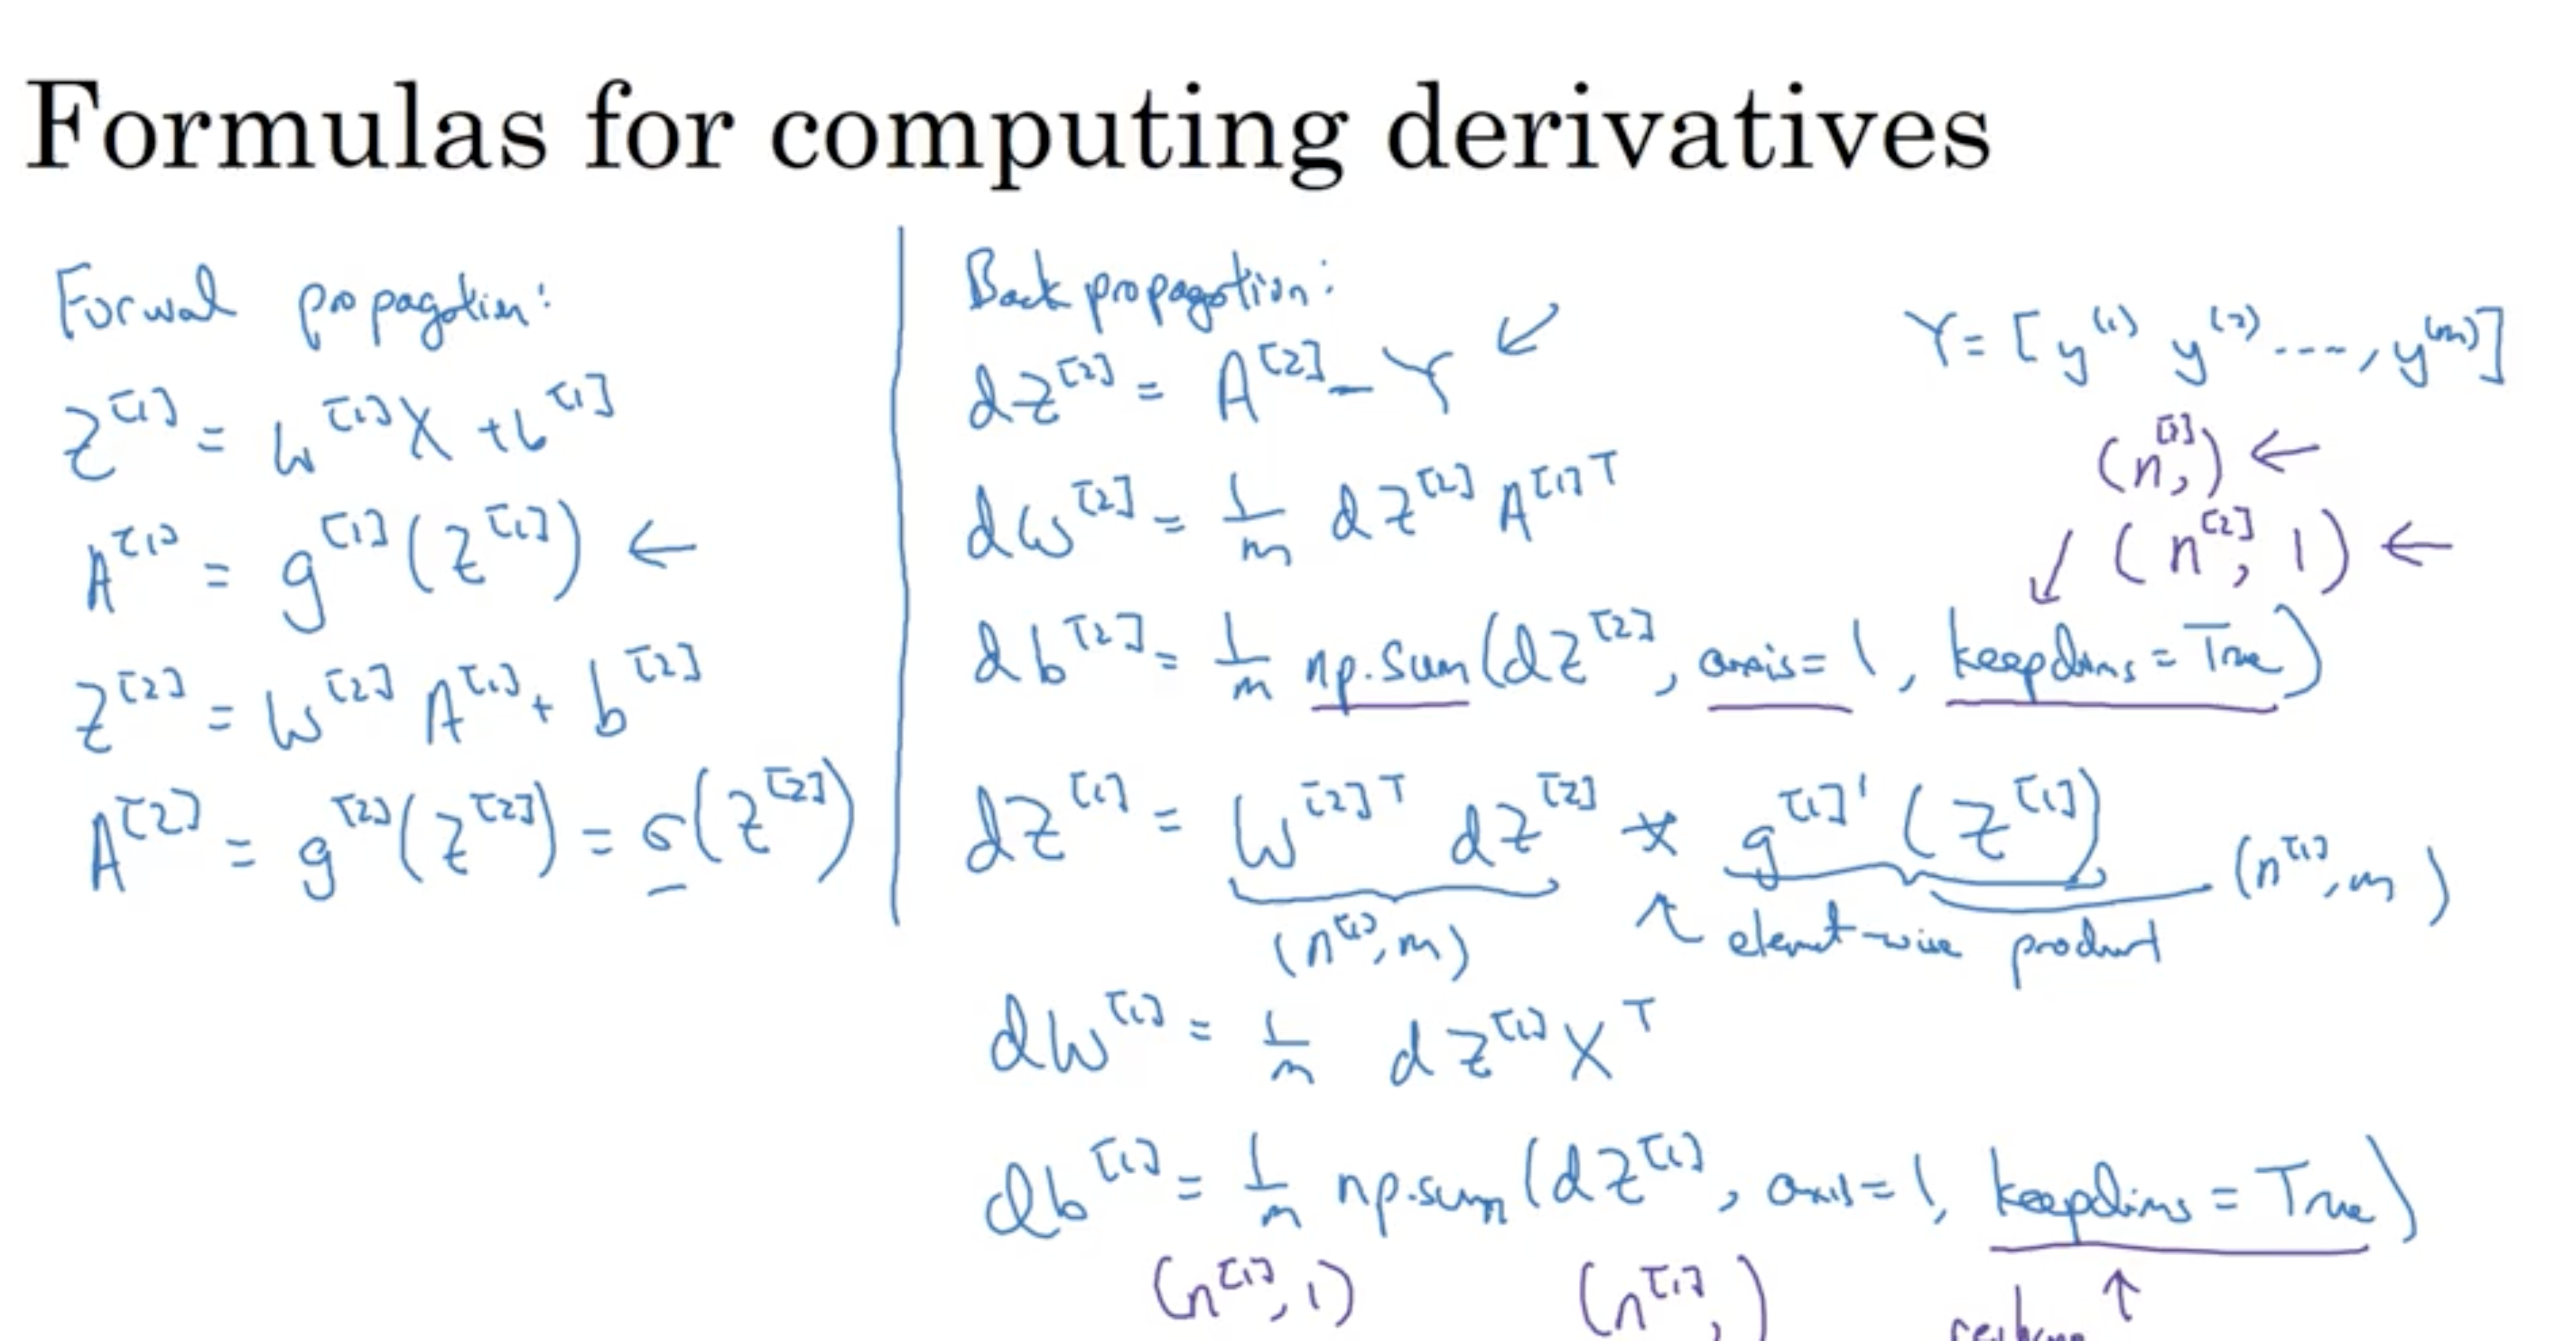 Formulas for computing derivatives
Forward propagation:
Z^[1] = W^[1] X + b^[1]
A^[1] = g^[1](Z^[1]) ←
Z^[2] = W^[2] A^[1] + b^[2]
A^[2] = g^[2](Z^[2]) = σ(Z^[2])
Back propagation:
dZ^[2] = A^[2] - Y ↙
Y = [y^(1) y^(2) ...., y^(m)]
dW^[2] = 1/m dZ^[2] A^[1]T
(n^[2],) ←
↙ (n^[2], 1) ←
db^[2] = 1/m np.sum(dZ^[2], axis=1, keepdims=True)
dZ^[1] = W^[2]T dZ^[2] * g^[1]'(Z^[1])
(n^[1], m) ↖ element-wise product (n^[1], m)
dW^[1] = 1/m dZ^[1] X^T
db^[1] = 1/m np.sum(dZ^[1], axis=1, keepdims=True)
(n^[1], 1) (n^[1],) ↑